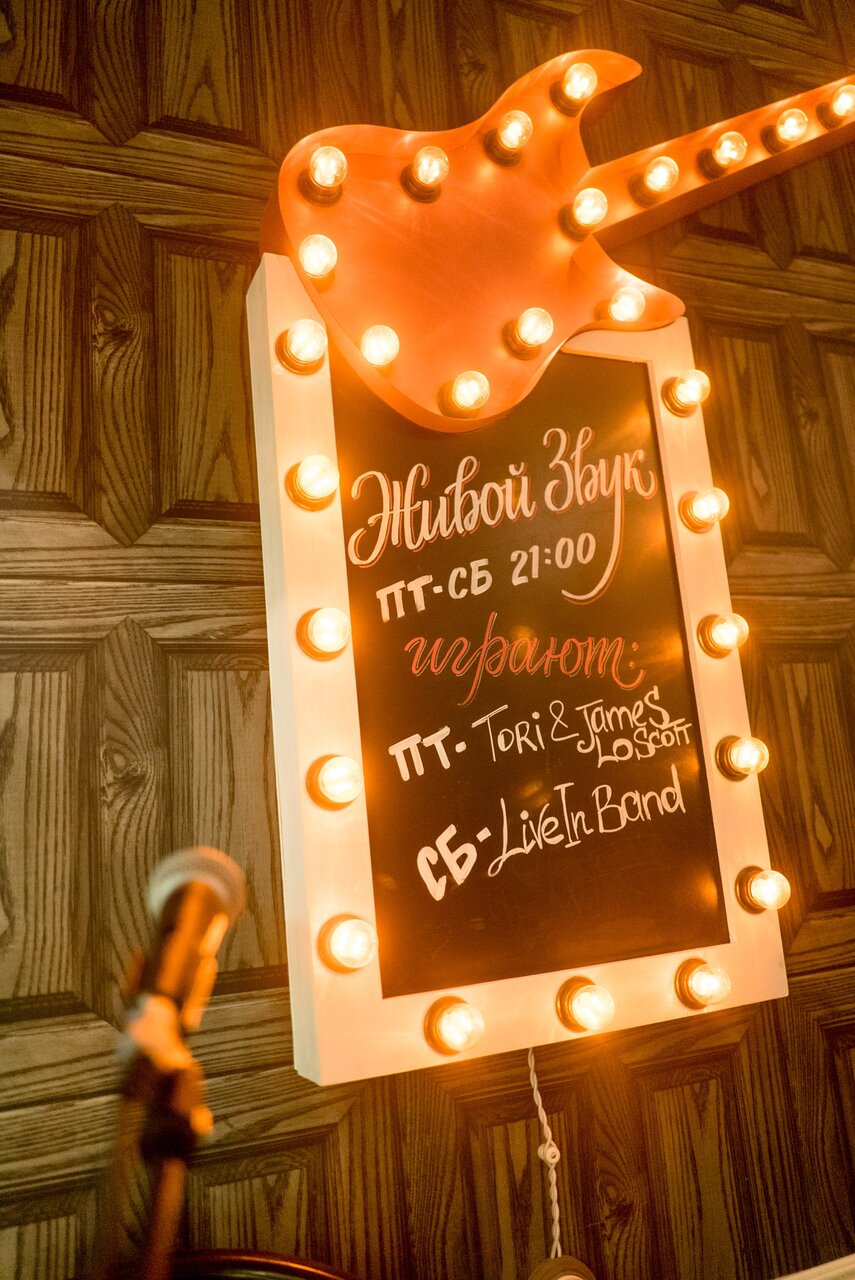 Живой Звук
ПТ-СБ 21:00
играют:
ПТ- Tori & James
Lo Scott
СБ- LiveIn Band